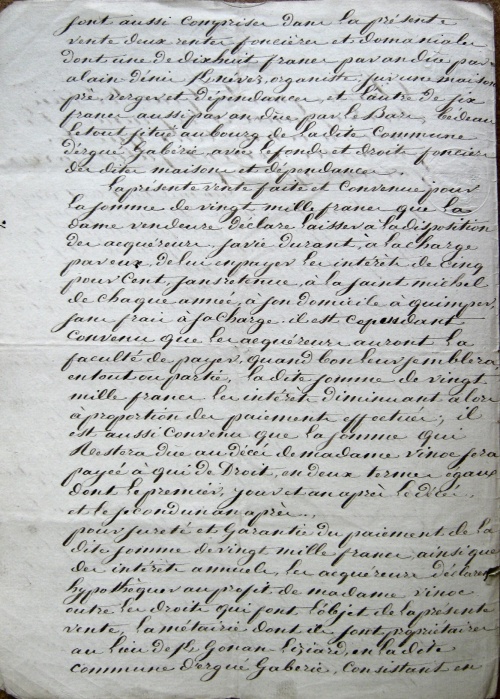 sont aussi comprises dans la présente
vente deux rentes foncières et domaniales
dont une de dix huit francs par an due par
alain denis organiste, sur une maison
pré, verger et dépendances, et l'autre de six
francs aussi par an due par le Barz, bedeau
le tout situé au bourg de la dite commune
d'ergué Gabéric, avec le fonds et droits fonciers
des dites maisons et dépendances.
la présente vente faite et convenue pour
la somme de vingt mille francs que la
dame venderesse déclare laisser à la disposition
des acquéreurs, sa vie durant, à la charge
par eux, de lui en payer les intérêts de cinq
pour cent, sans retenue, à la saint michel
de chaque année, à son domicile à quimper,
sans frais à sa charge. il est cependant
convenu que les acquéreurs auront la
faculté de payer, quand bon leur semblera
en tout ou partie, la dite somme de vingt
mille francs les intérêts diminuant alors
à proportion des paiements effectués; il
est aussi convenu que la somme qui
Restera due au décès de madame vinoc sera
payée à qui de Droit, en deux termes égaux
dont le premier, jour et an après le décès,
et le second un an après.
pour sureté et Garantie du paiement de la
dite somme de vingt mille francs, ainsi que
des intérêts annuels, les acquéreurs déclarent
hypothéquer au profit de madame vinoc
outre les droits qui font l'objet de la présente
vente, la métairie dont ils sont propriétaires
au lieu de en la dite
commune d'ergué Gaberic, Consistant en